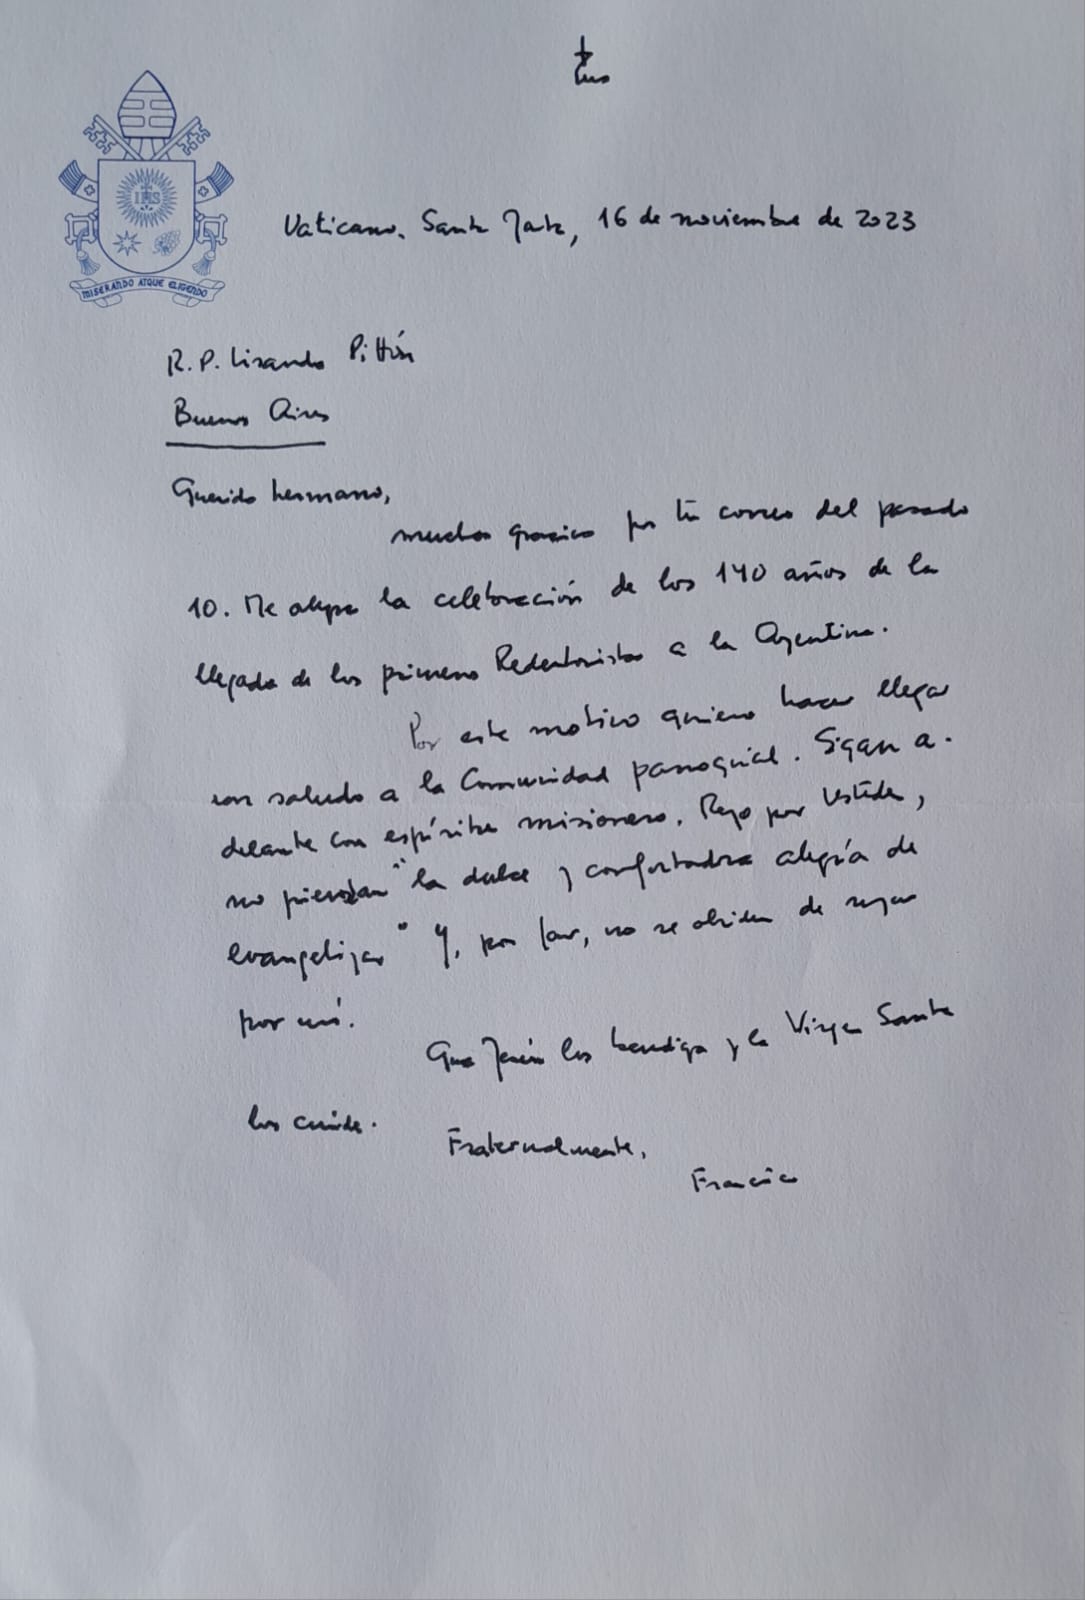 IHS
MISERANDO ATQUE ELIGENDO
Vaticano. Santa Marta, 16 de noviembre de 2023
R. P. Lisandro Pittón
Buenos Aires
Querido hermano,
muchas gracias por tu correo del pasado
10. Me alegra la celebración de los 140 años de la
llegada de los primeros Redentoristas a la Argentina.
Por este motivo quiero hacer llegar
un saludo a la Comunidad parroquial. Sigan a-
delante con espíritu misionero. Rezo por Ustedes,
no pierdan "la dulce y confortadora alegría de
evangelizar" Y, por favor, no se olviden de rezar
por mí.
Que Jesús los bendiga y la Virgen Santa
los cuide.
Fraternalmente,
Francisco